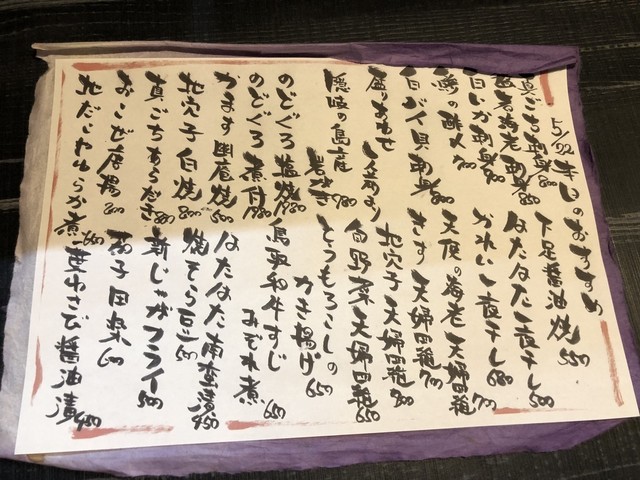 5/22 本日のおすすめ
真ごち刺身 800
下足醤油焼 550
岩海老刺身 850
はたはた一夜干し 500
白いか刺身 800
かれい一夜干し 680
鯵の酢〆 700
天使の海老天婦羅 700
白バイ貝刺身 800
きす天婦羅 700
盛りあわせ 一人前より
地穴子天婦羅 800
隠岐の島産 岩がき 780
白野菜天婦羅 650
とうもろこしのかき揚げ 650
のどぐろ塩焼 1980
のどぐろ煮付 1980
鳥取和牛すじ みぞれ煮 650
かます幽庵焼 500
はたはた南蛮漬 450
地穴子白焼 800
焼そら豆 500
真ごちあらだき 800
新じゃがフライ 500
おこぜ唐揚 800
茄子田楽 600
地だこやわらか煮 550
葉わさび醤油漬 450